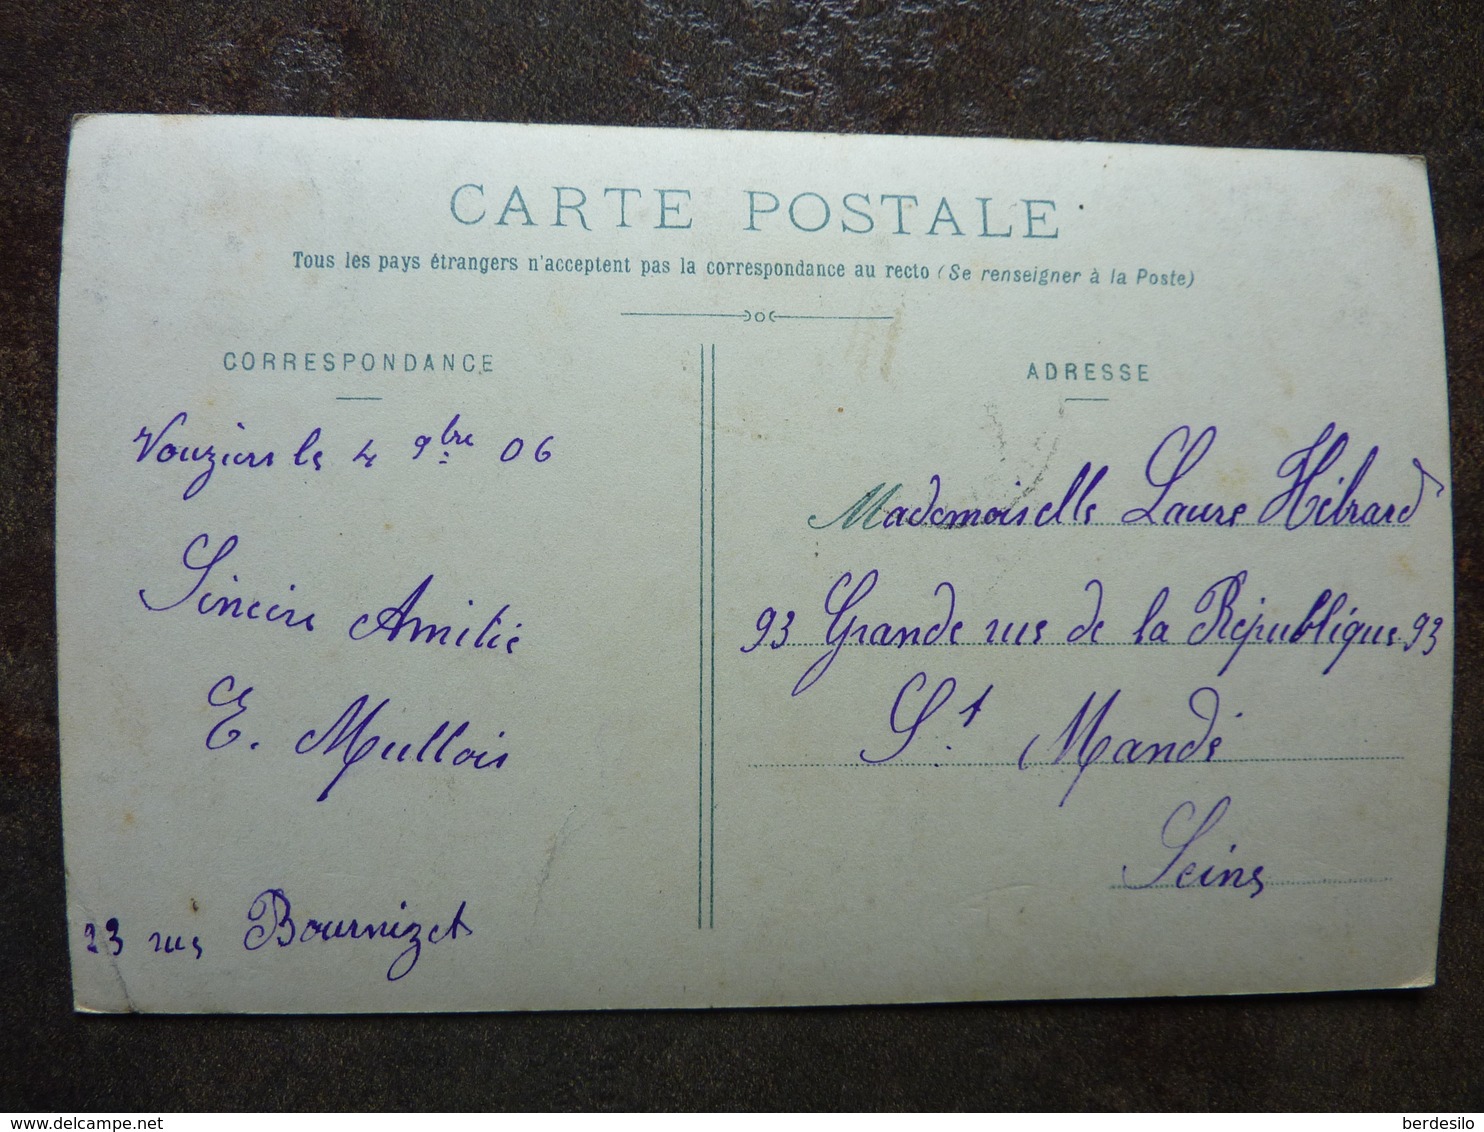 CARTE POSTALE
Tous les pays étrangers n'acceptent pas la correspondance au recto (Se renseigner à la Poste)
CORRESPONDANCE
Vouziers le 4 9bre 06
Sincère Amitié
E. Mullois
23 rue Bournizet
ADRESSE
Mademoiselle Laure Hébrard
93 Grande rue de la République 93
St Mandé
Seine
berdesilo